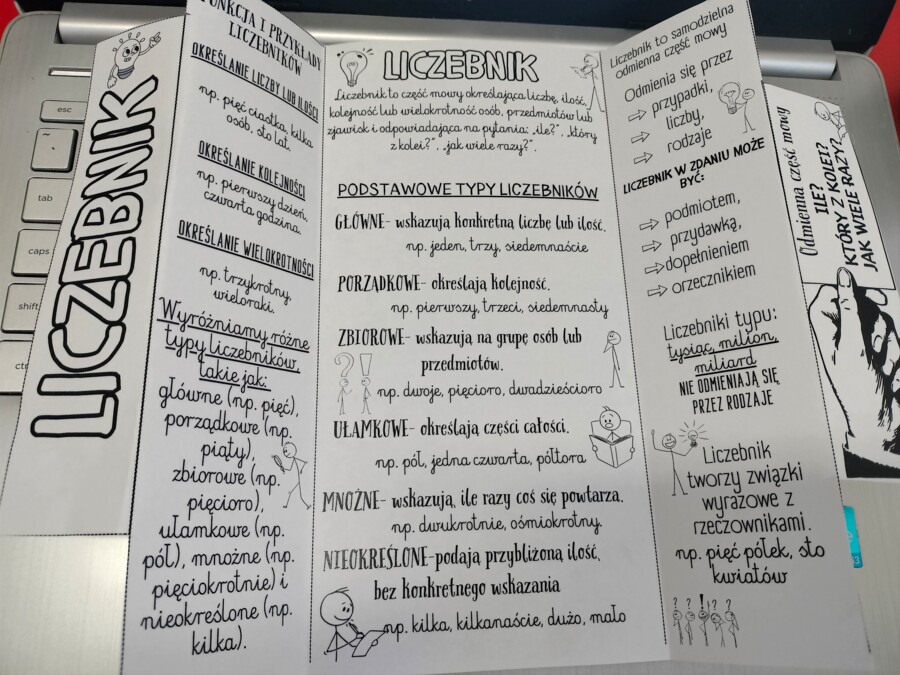 LICZEBNIK
FUNKCJA I PRZYKŁADY
LICZEBNIKÓW
OKREŚLANIE LICZBY LUB ILOŚCI
np. pięć ciastka, kilka
osób, sto lat.
OKREŚLANIE KOLEJNOŚCI
np. pierwszy dzień,
czwarta godzina.
OKREŚLANIE WIELOKROTNOŚCI
np. trzykrotny,
wieloraki.
Wyróżniamy różne
typy liczebników,
takie jak:
główne (np. pięć),
porządkowe (np.
piąty),
zbiorowe (np.
pięcioro),
ułamkowe (np.
pół), mnożne (np.
pięciokrotnie) i
nieokreślone (np.
kilka).
LICZEBNIK
Liczebnik to część mowy określająca liczbę, ilość,
kolejność lub wielokrotność osób, przedmiotów lub
zjawisk i odpowiadająca na pytania: „ile?”, „który
z kolei?”, „jak wiele razy?”.
PODSTAWOWE TYPY LICZEBNIKÓW
GŁÓWNE- wskazują konkretną liczbę lub ilość.
np. jeden, trzy, siedemnaście
PORZĄDKOWE- określają kolejność.
np. pierwszy, trzeci, siedemnasty
ZBIOROWE- wskazują na grupę osób lub
przedmiotów.
np. dwoje, pięcioro, dwadzieścioro
UŁAMKOWE- określają części całości.
np. pół, jedna czwarta, półtora
MNOŻNE- wskazują, ile razy coś się powtarza.
np. dwukrotnie, ośmiokrotny.
NIEOKREŚLONE-podają przybliżoną ilość,
bez konkretnego wskazania
np. kilka, kilkanaście, dużo, mało
Liczebnik to samodzielna
odmienna część mowy
Odmienia się przez
przypadki,
liczby,
rodzaje
LICZEBNIK W ZDANIU MOŻE
BYĆ:
podmiotem,
przydawką,
dopełnieniem
orzecznikiem
Liczebniki typu:
tysiąc, milion,
miliard
NIE ODMIENIAJĄ SIĘ
PRZEZ RODZAJE
Liczebnik
tworzy związki
wyrazowe z
rzeczownikami.
np. pięć półek, sto
kwiatów
? ? ! ? ?
Odmienna część mowy
ILE?
KTÓRY Z KOLEI?
JAK WIELE RAZY?
esc
~
tab
caps
shift
ctr